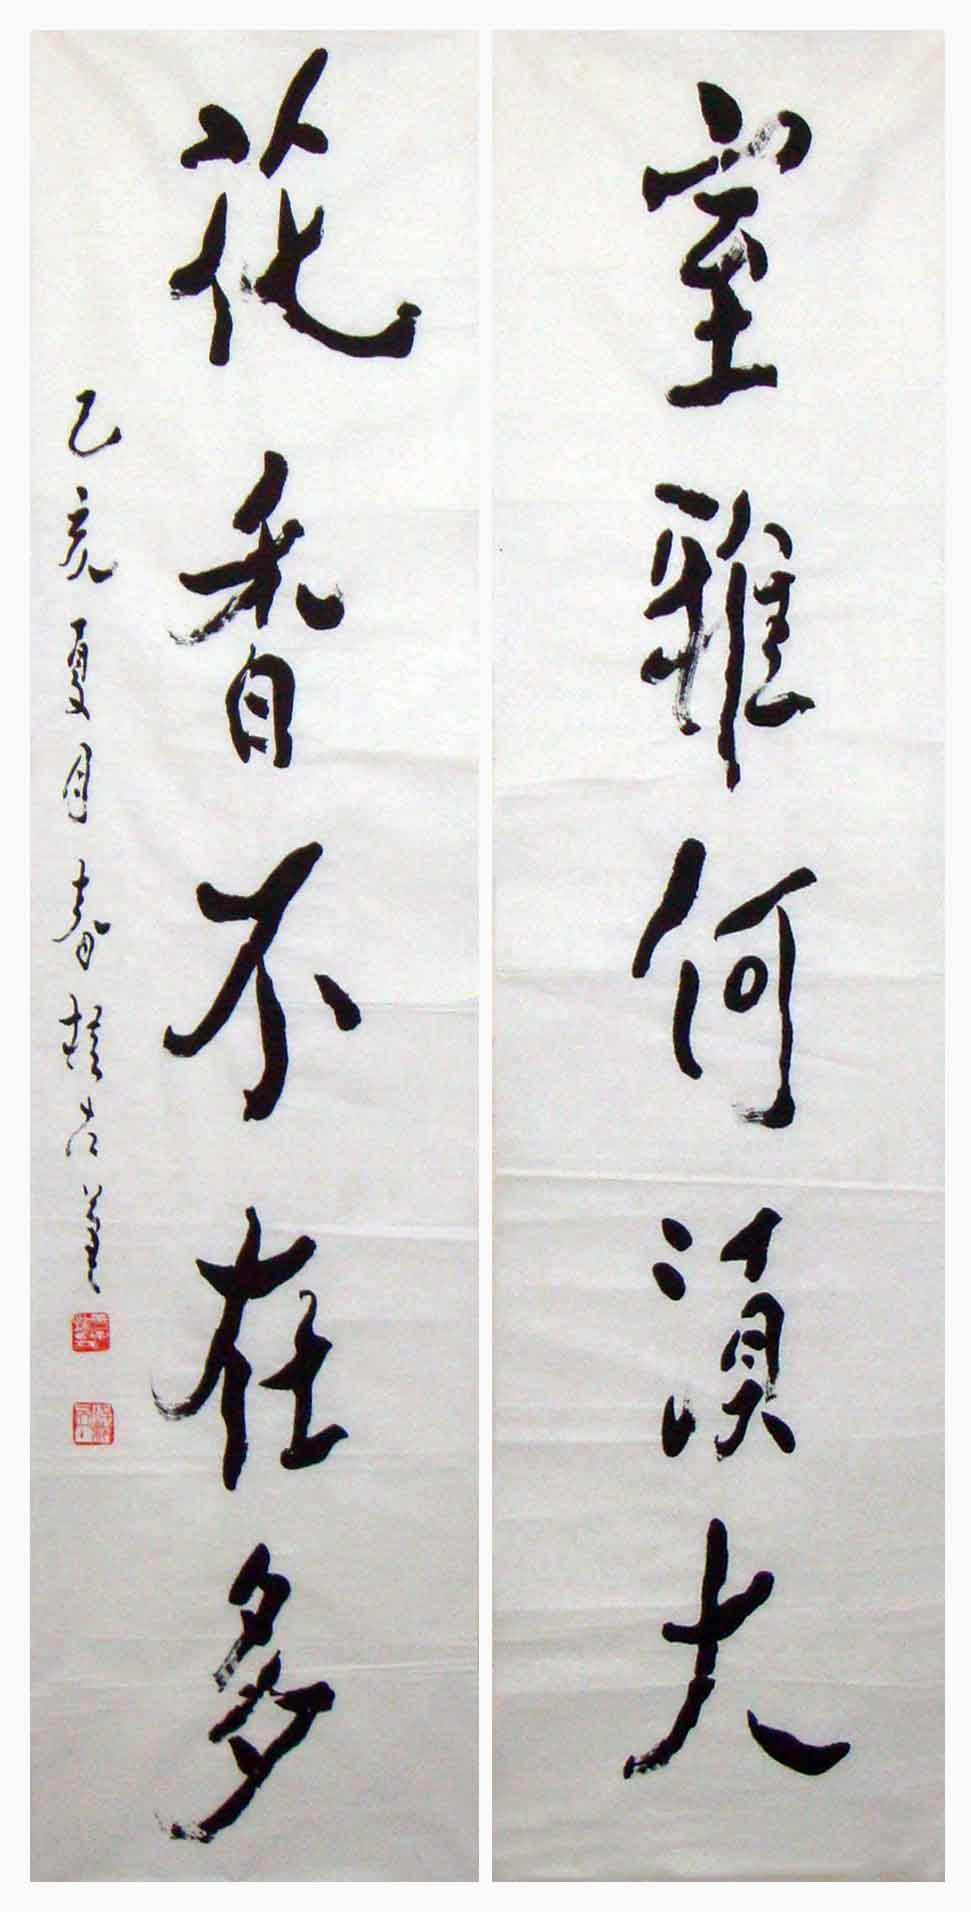 室雅何須大
花香不在多
乙亥夏月